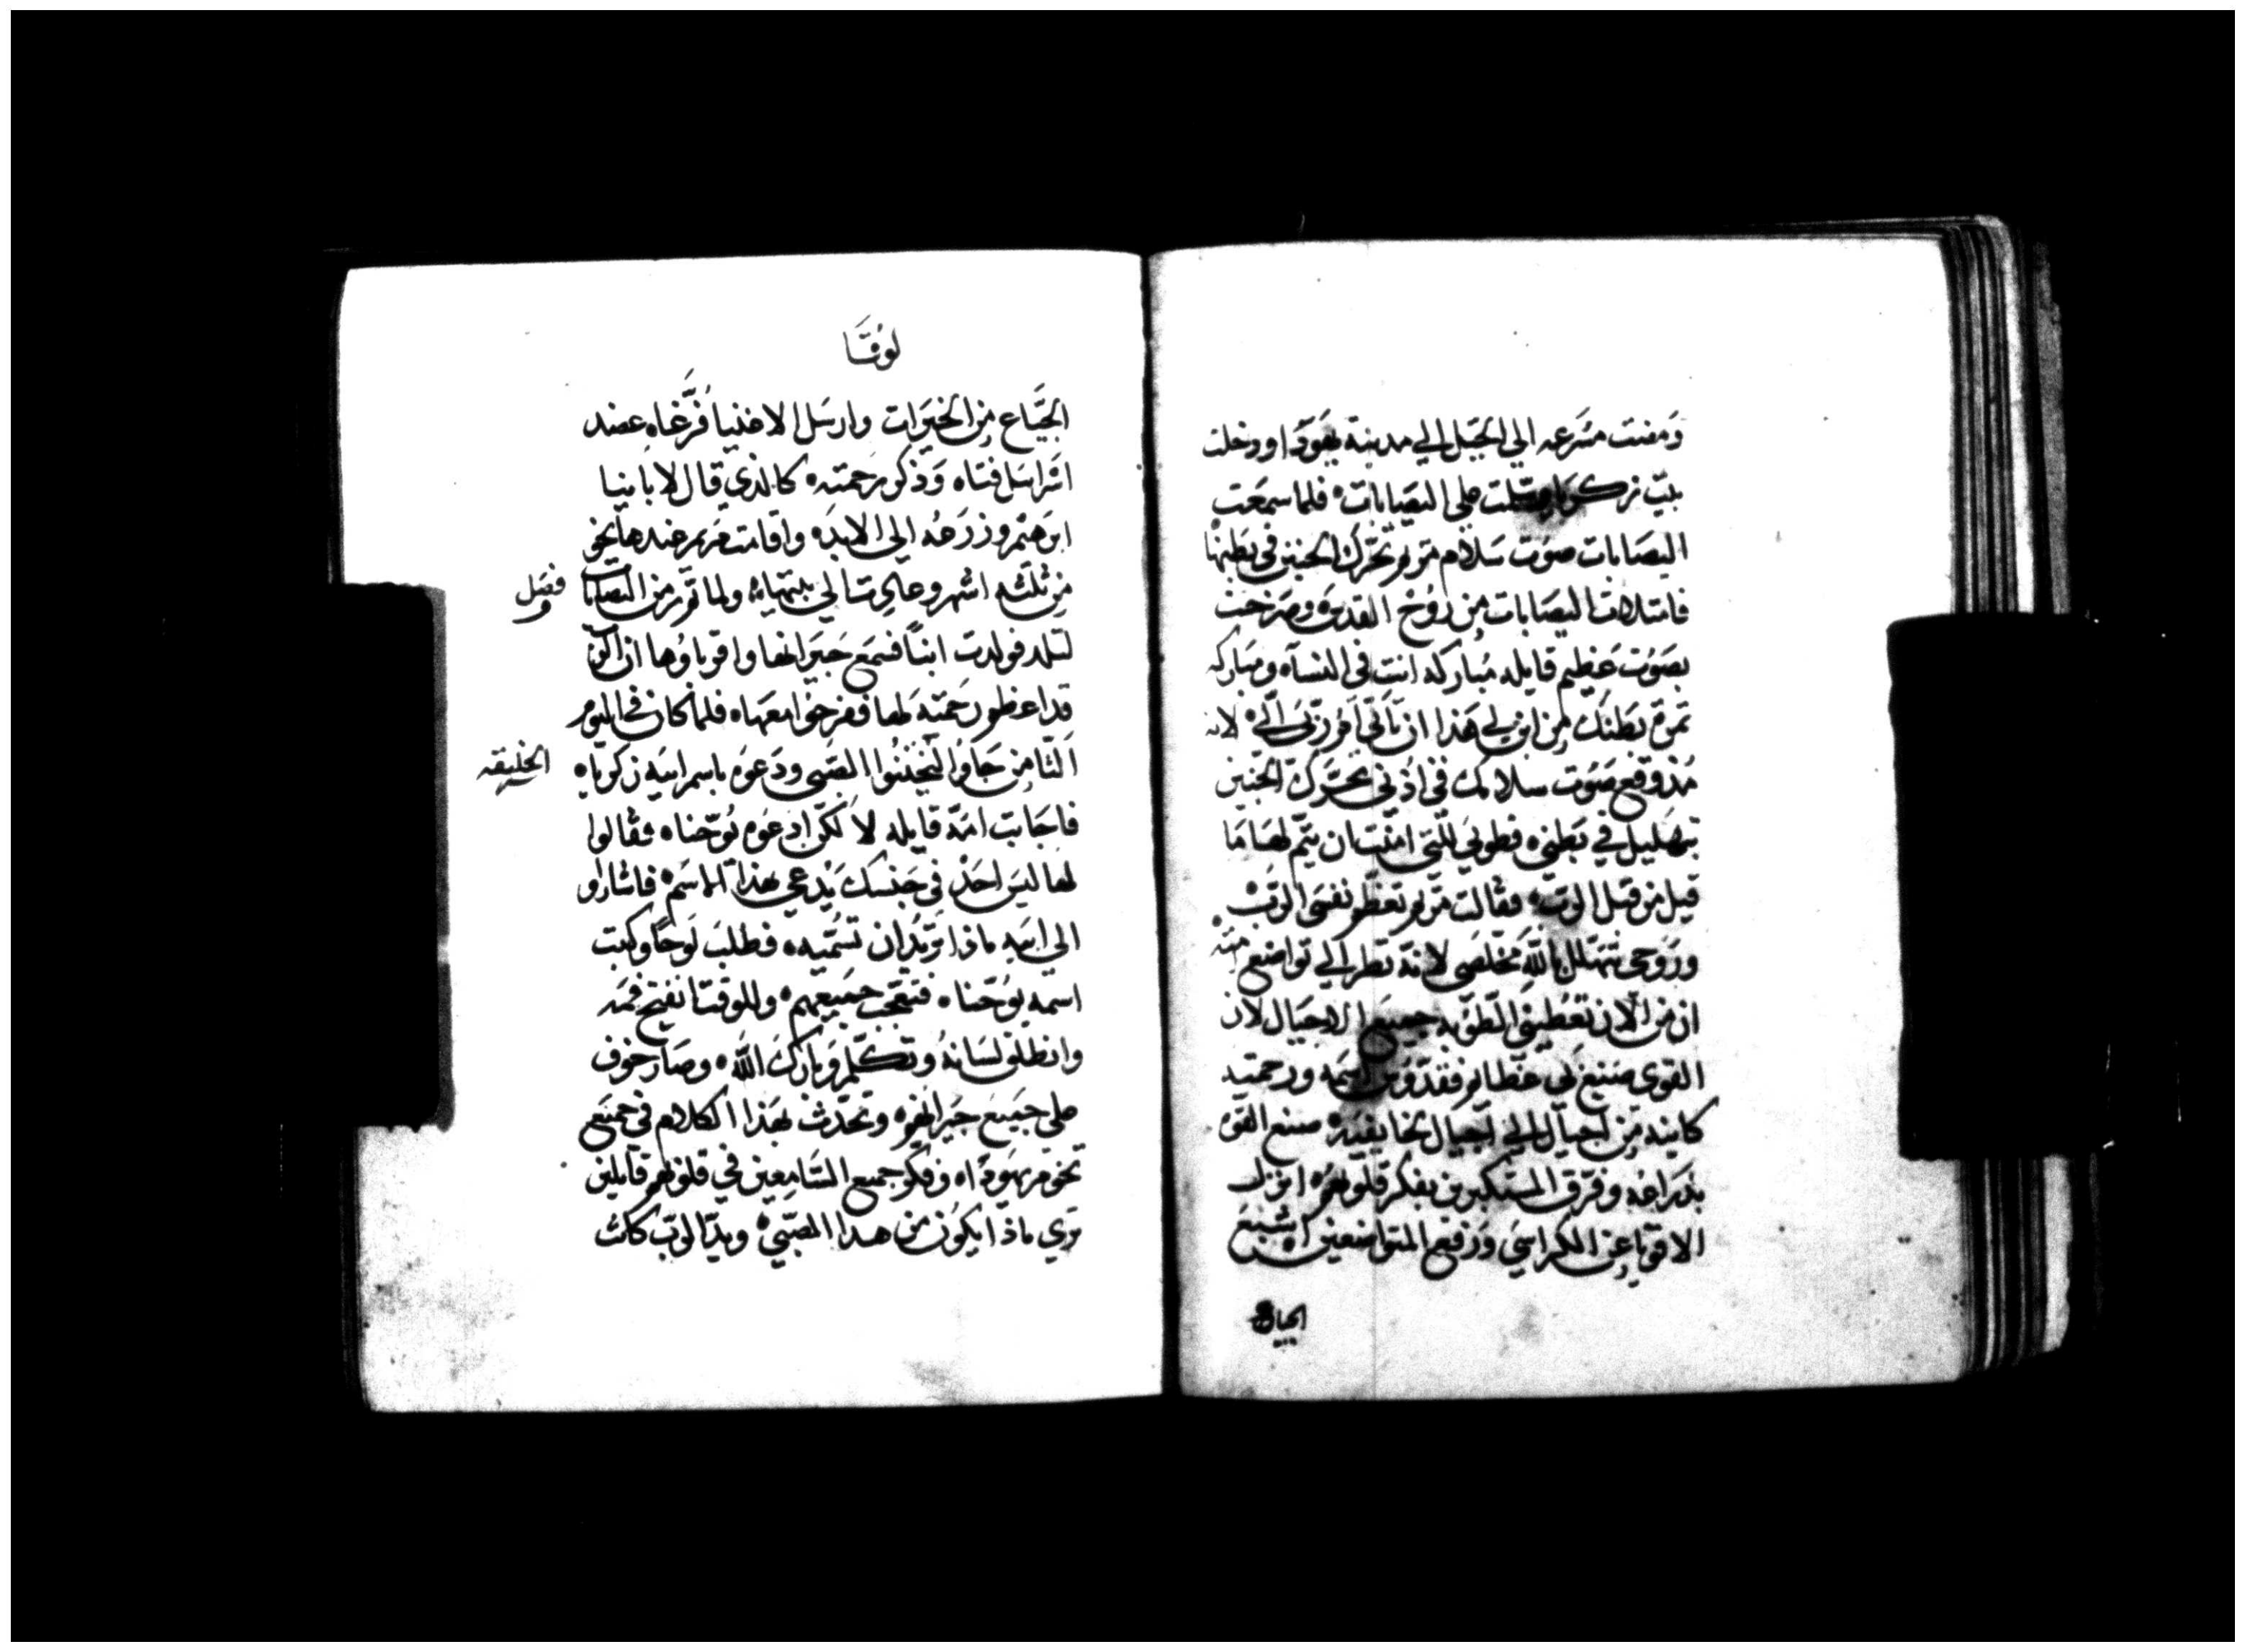 ومضت مسرعه الي الجبل الي مدينة يهودا ودخلت
بيت زكريا وسلمت علي اليصابات فلما سمعت
اليصابات صوت سلام مريم تحرك الجنين في بطنها
فامتلات اليصابات من روح القدس وصرخت
بصوت عظيم قايله مباركه انت في النسآء ومباركه
ثمرة بطنك من اين لي هذا ان تاتي ام ربي الي لانه
مذ وقع صوت سلامك في اذني تحرك الجنين
بتهليل في بطني فطوبي للتي امنت ان يتم لها ما
قيل من قبل الرب فقالت مريم تعظم نفسي الرب
وروحي تتهلل بالله مخلصي لانه نظر الي تواضع امته
ان من الآن تعطيني الطوبه جميع الاجيال لان
القوي صنع بي عظايم فقدوس اسمه ورحمته
كاينه من اجيال الي اجيال لخايفيه صنع القوه
بذراعه وفرق المستكبرين بفكر قلوبهم انزل
الاقويا عن الكراسي ورفع المتواضعين اشبع
الجياع
لوقا
الجياع من الخيرات وارسل الاغنيا فرغا عضد
اسراييل فتاه وذكر رحمته كالذي قال لابآينا
ابرهيم وزرعه الي الابد واقامت مريم عندها نحو
من ثلثه اشهر وعادت الي بيتها ولما تم زمن اليصابات
فصل
لتلد فولدت ابنا فسمع جيرانها واقرباوها ان الرب
قد اعظم رحمته لها ففرحوا معها فلما كان في اليوم
الثامن جاوا ليختنوا الصبي ودعوه باسم ابيه زكريا
الخليقه
فاجابت امه قايله لا لكن ادعوه يوحنا فقالوا
لها ليس احد في جنسك يدعي بهذا الاسم فاشاروا
الي ابيه ماذا تريد ان تسميه فطلب لوحا وكتب
اسمه يوحنا فتعجب جميعهم وللوقت انفتح فمه
وانطلق لسانه وتكلم وبارك الله وصار خوف
علي جميع جيرانهم وتحدث بهذا الكلام في جميع
تخوم يهودا وفكر جميع السامعين في قلوبهم قايلين
تري ماذا يكون من هذا الصبي ويد الرب كانت